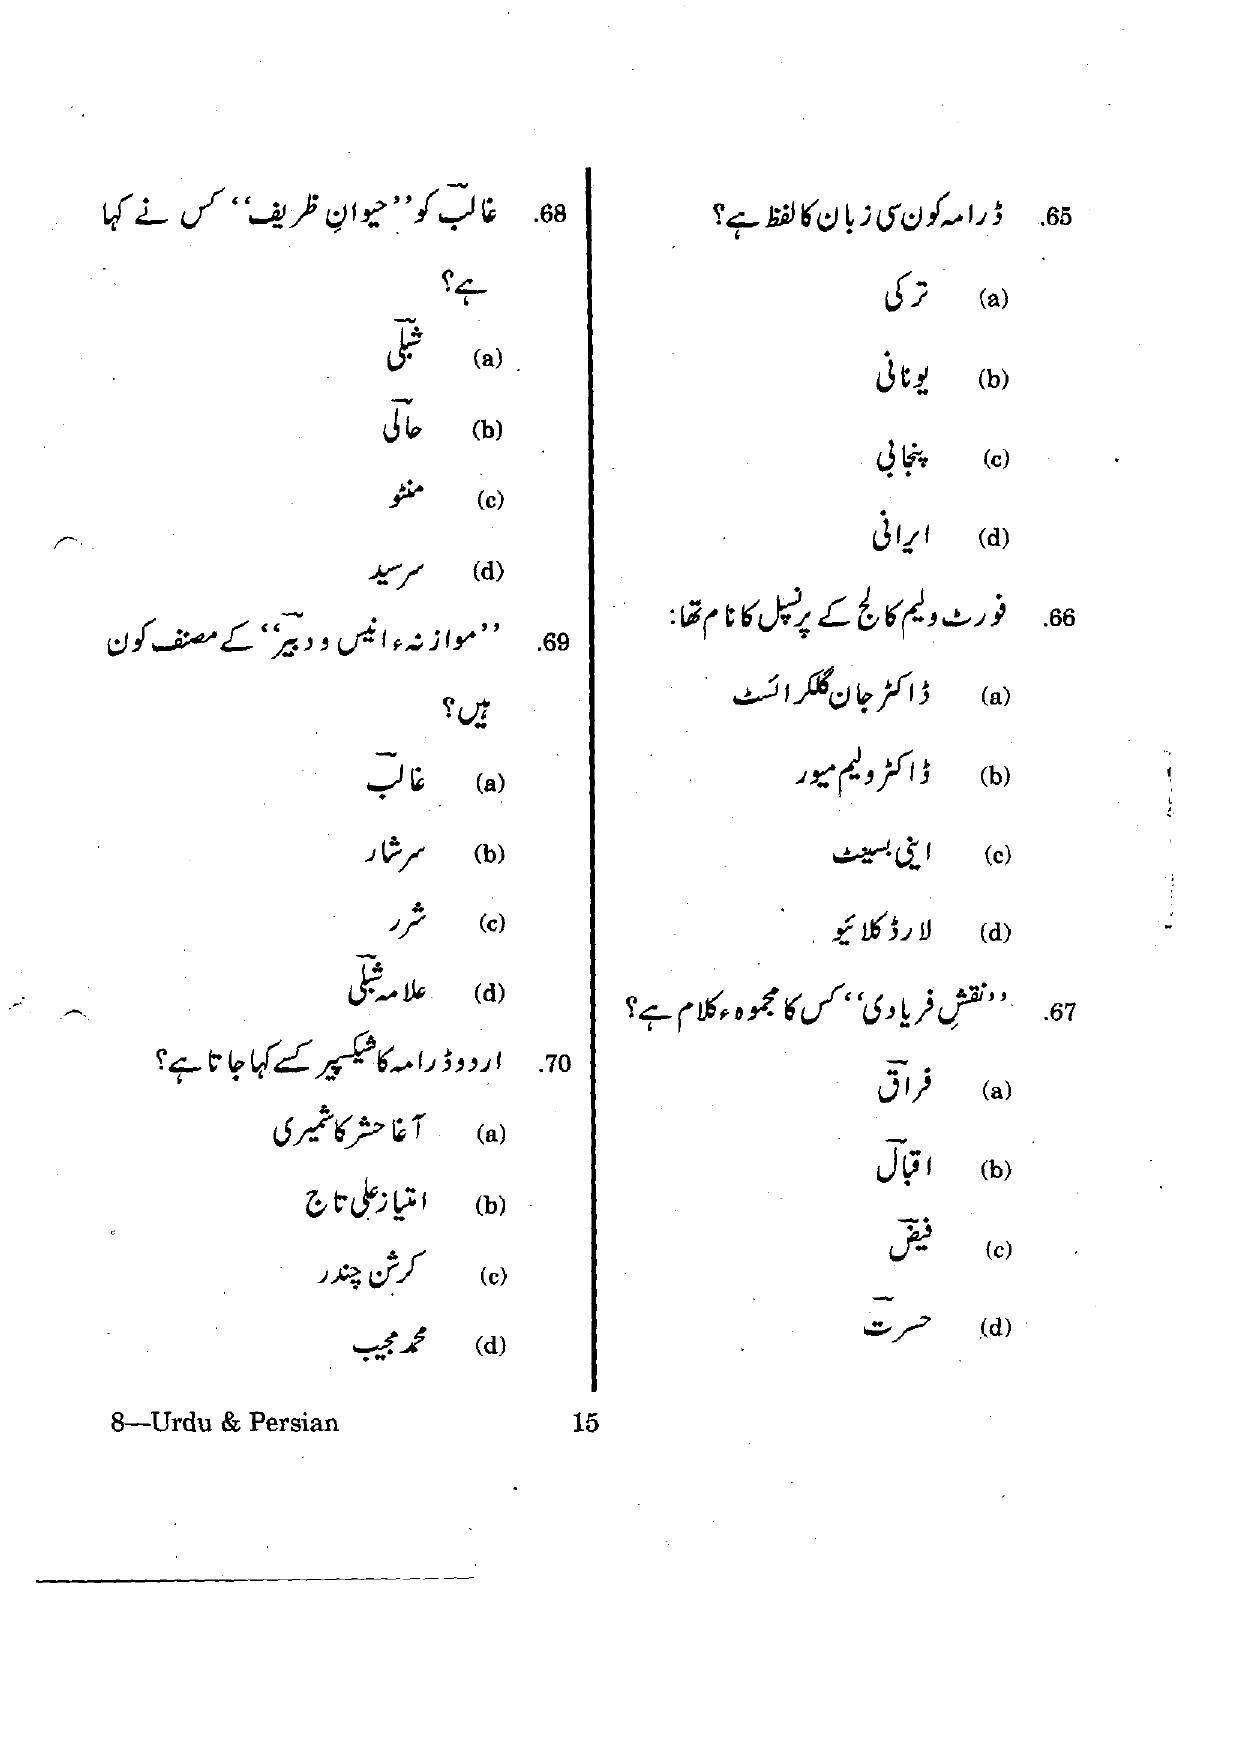 65. ڈرامہ کون سی زبان کا لفظ ہے؟
(a) ترکی
(b) یونانی
(c) پنجابی
(d) ایرانی
66. فورٹ ولیم کالج کے پرنسپل کا نام تھا:
(a) ڈاکٹر جان گلکرائسٹ
(b) ڈاکٹر ولیم میور
(c) اینی بسینٹ
(d) لارڈ کلائیو
67. ’’نقشِ فریادی‘‘ کس کا مجموہء کلام ہے؟
(a) فراقؔ
(b) اقبالؔ
(c) فیضؔ
(d) حسرتؔ
68. غالبؔ کو ’’حیوانِ ظریف‘‘ کس نے کہا
ہے؟
(a) شبلیؔ
(b) حالیؔ
(c) منٹو
(d) سرسید
69. ’’موازنہء انیس و دبیرؔ‘‘ کے مصنف کون
ہیں؟
(a) غالبؔ
(b) سرشار
(c) شرر
(d) علامہ شبلیؔ
70. اردو ڈرامہ کا شیکسپیر کسے کہا جاتا ہے؟
(a) آغا حشر کاشمیری
(b) امتیاز علی تاج
(c) کرشن چندر
(d) محمد مجیب
8—Urdu & Persian 15